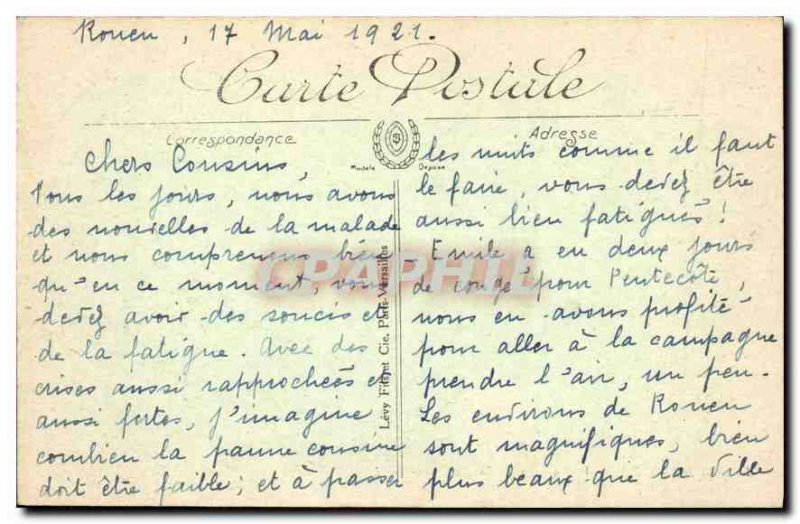 Rouen, 17 Mai 1921.
Carte Postale
Correspondance
Adresse
Modèle Déposé
Chers Cousins,
Tous les jours, nous avons
des nouvelles de la malade
et nous comprenons bien
qu'en ce moment, vous
devez avoir des soucis et
de la fatigue. Avec des
crises aussi rapprochées et
aussi fortes, j'imagine
combien la pauvre cousine
doit être faible; et à passer
les nuits comme il faut
le faire, vous devez être
aussi bien fatigués!
- Emile a eu deux jours
de congé pour Pentecôte,
nous en avons profité
pour aller à la campagne
prendre l'air, un peu.
Les environs de Rouen
sont magnifiques, bien
plus beaux que la ville
Lévy Fils et Cie, Paris-Versailles
CPAPHIL